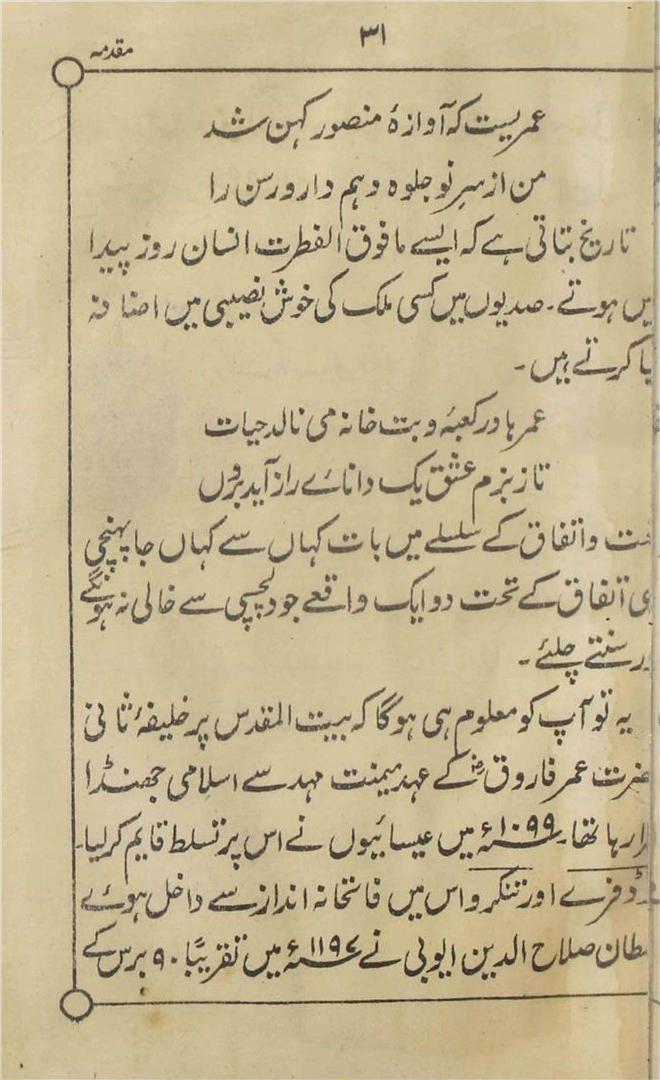 ۳۱
مقدمہ
عمریست کہ آوازۂ منصور کہن شد
من از سرِ نو جلوہ دہم دار و رسن را
تاریخ بتاتی ہے کہ ایسے مافوق الفطرت انسان روز پیدا
یں ہوتے۔ صدیوں میں کسی ملک کی خوش نصیبی میں اضافہ
یا کرتے ہیں۔
عمرہا در کعبہ و بت خانہ می نالد حیات
تا ز بزم عشق یک دانائے راز آید بروں
ت و اتفاق کے سلسلے میں بات کہاں سے کہاں جا پہنچی
ی اتفاق کے تحت دو ایک واقعے جو دلچسپی سے خالی نہ ہونگے
ر سنتے چلئے۔
یہ تو آپ کو معلوم ہی ہوگا کہ بیت المقدس پر خلیفۂ ثانی
ضرت عمر فاروقؓ کے عہد میمنت مہد سے اسلامی جھنڈا
را رہا تھا۔ ۱۰۹۹ء میں عیسائیوں نے اس پر تسلط قایم کرلیا۔
ڈفرے اور تنکرو اس میں فاتحانہ انداز سے داخل ہوئے
طان صلاح الدین ایوبی نے ۱۱۹۷ء میں تقریبًا ۹۰ برس کے